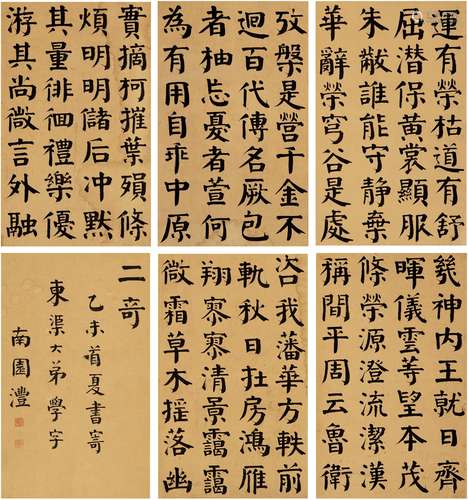 運有榮枯道有舒
屈潛保黃裳顯服
朱黻誰能守静棄
華辭榮穹谷是處
攷槃是營千金不
迴百代傳名厥包
者柚忘憂者萱何
為有用自乖中原
實摘柯摧葉殞條
煩明明儲后冲默
其量徘徊禮樂優
游其尚微言外融
幾神内王就日齊
暉儀雲等望本茂
條榮源澄流潔漢
稱間平周云魯衛
咨我藩華方軼前
軌秋日在房鴻雁
翔寥寥清景靄靄
微霜草木揺落幽
二奇
乙未首夏書寄
東渠大弟學字
南園灃